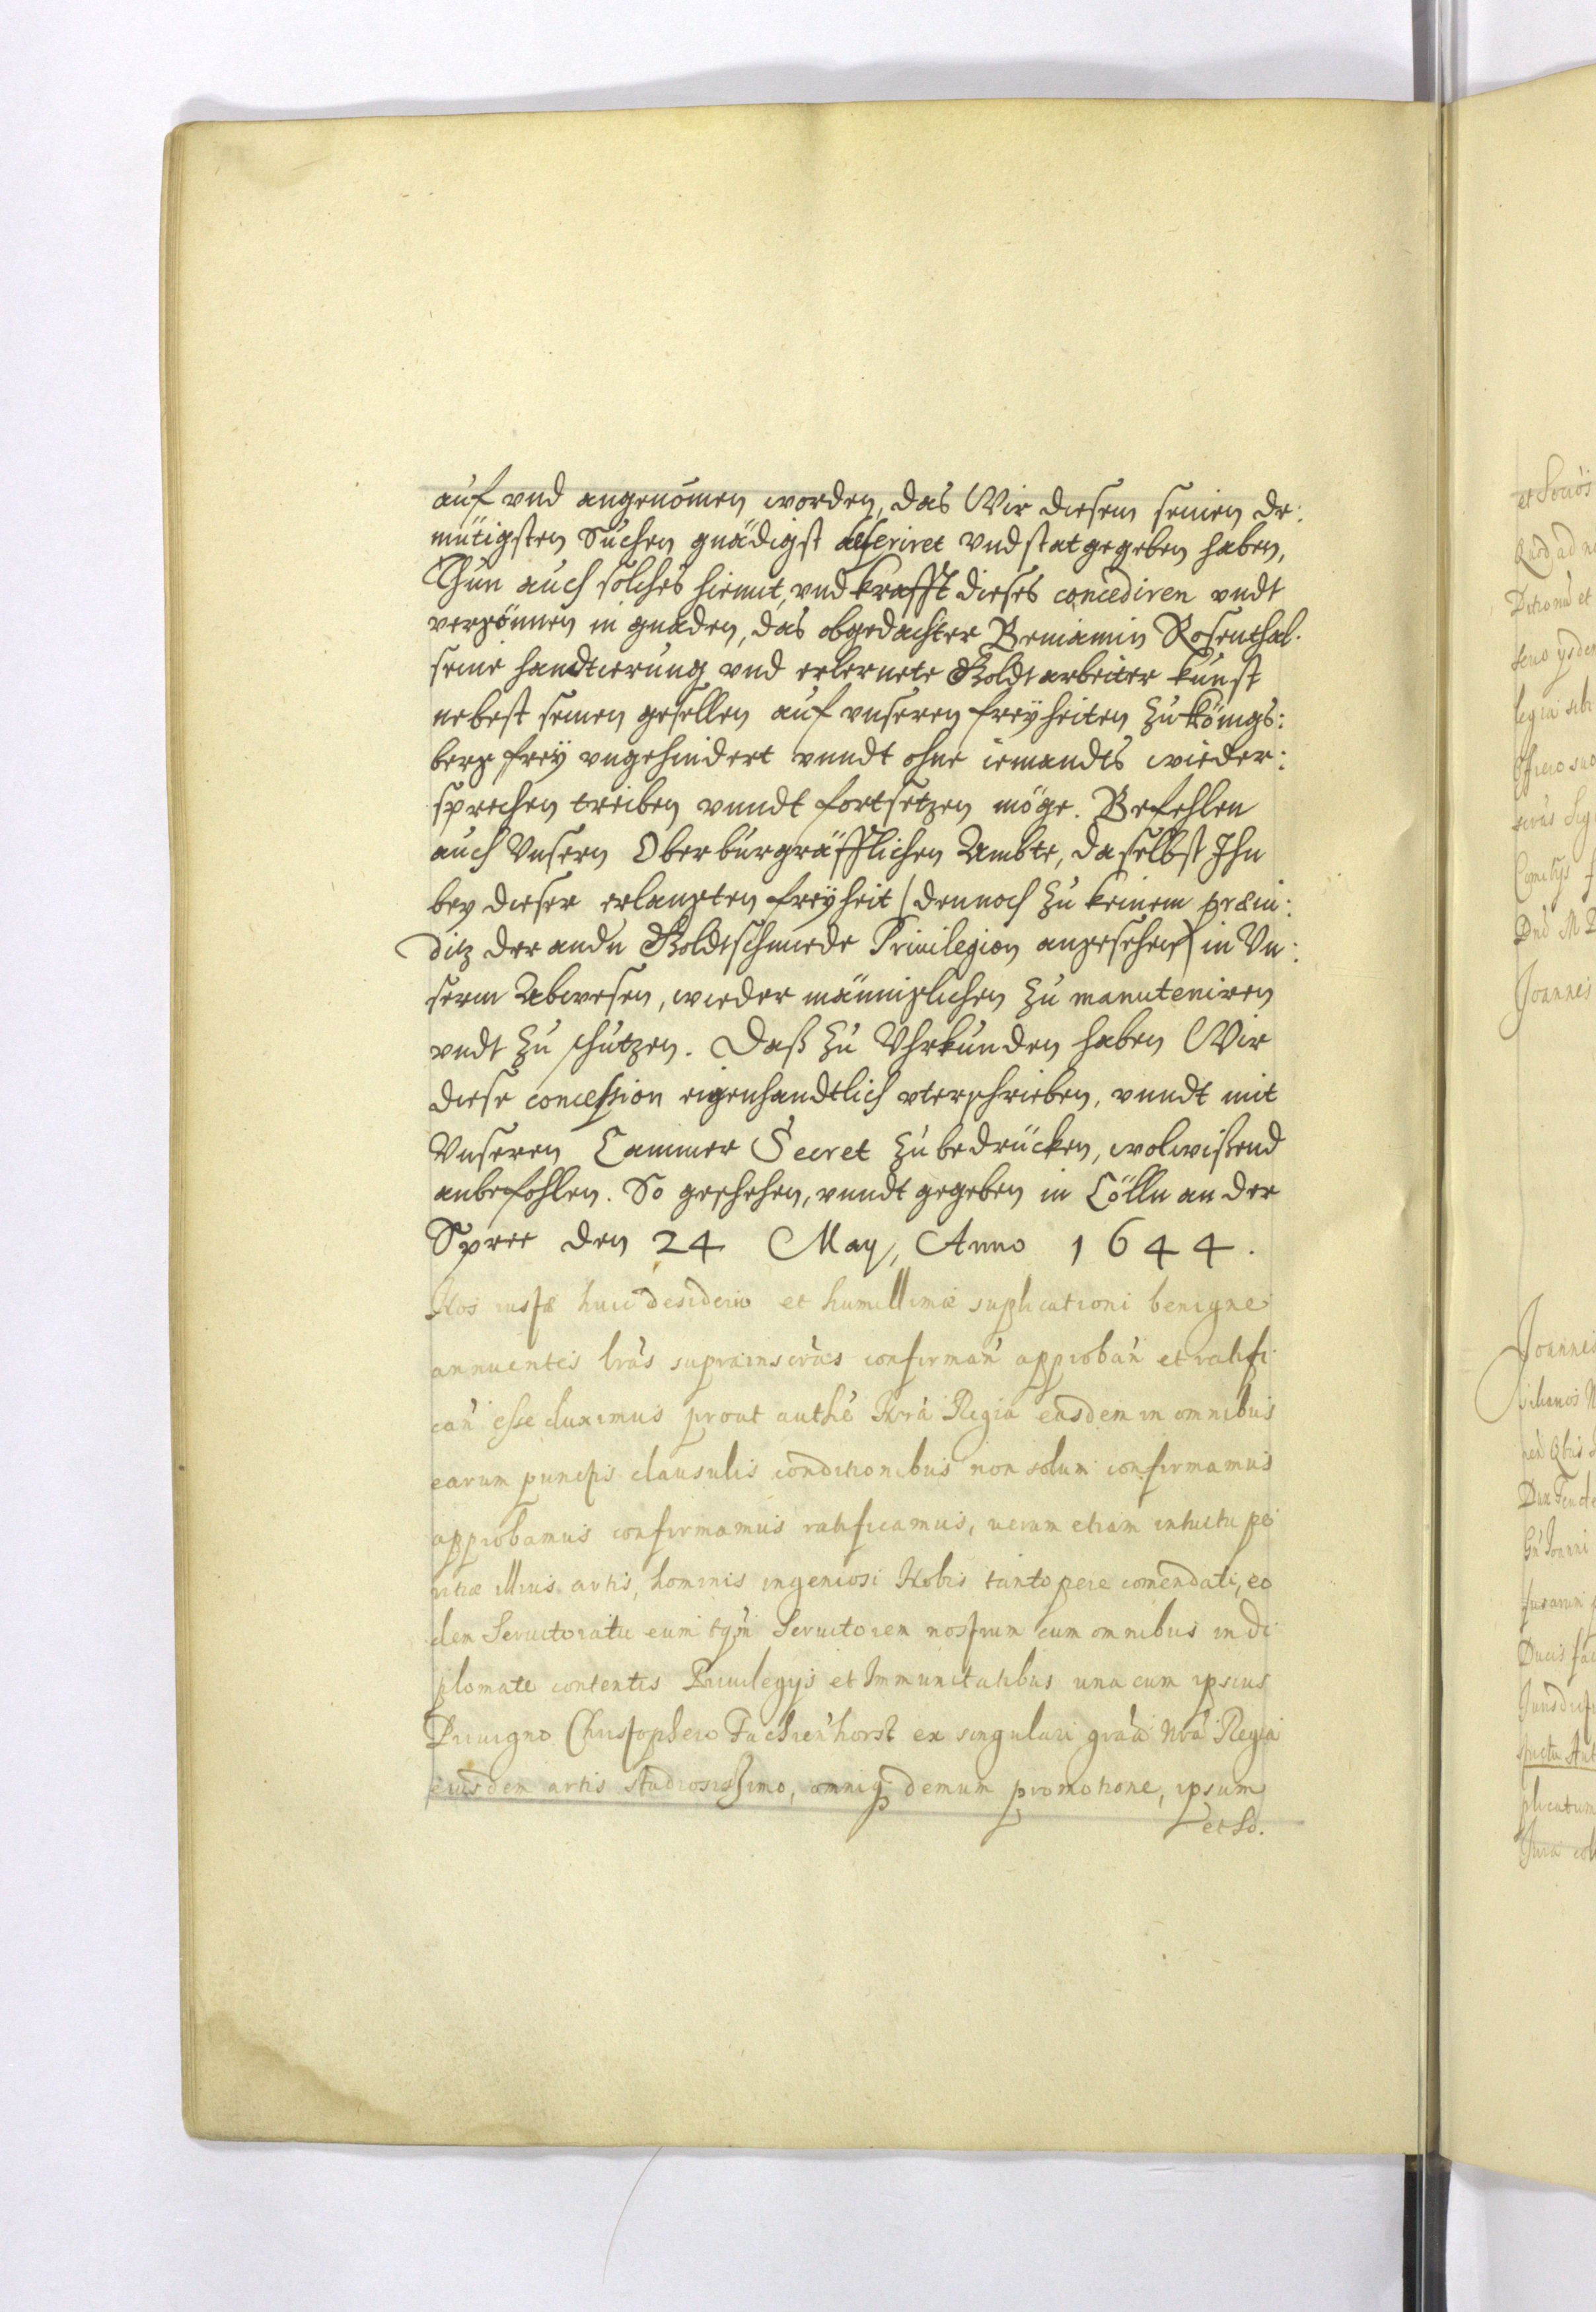 auf vnd angenomen worden, das Wir diesem seinen de:
mütigsten Suchen gnädigst deferiret vnd stat gegeben haben,
Thun auch solches hiemit, vnd krafft dieses concediren vndt
vergönnen in gnaden, das obgedachter Beniamin Rosenthal.
seine handtierung vnd erlernete Goldtarbeiter kunst
nebest seinen gesellen auf vnseren freyheiten zu Königs:
berg frey vngehindert vnndt ohne iemandts wieder:
sprechen treiben vnndt fortsetzen möge. Befehlen
auch Vnsern Oberburgräfflichen Ambte, daselbst Ihn
bey dieser erlangten freyheit (dennoch zu keinem præiu:
ditz der andn Goldtschmiede Priuilegion angesehen) in Vn:
serm Abwesen, wieder männiglichen zu manuteniren
vndt zu schutzen. Daß zu Vhrkunden haben Wir
diese concession eigenhandtlich vterschrieben, vnndt mit
Vnseren Cammer Secret zubedrücken, wolwißend
anbefohlen. So geschehen, vnndt gegeben in Cölln an der
Spree den 24 May, Anno 1644.
Nos iustæ huic desiderio et humillimæ suplicationi benigne
annuentes lras suprainsertas confirman approban et ratifi
can esse duximus prout authe Nrâ Regia easdem in omnibus
earum punctis clausulis conditionibus non solum confirmamus
approbamus confirmamus ratificamus, uerum etiam intuitu pe
ritiæ illius artis, hominis ingeniosi Nobis tantopere comendati, eo
dem Seruitoratu eum tqm Seruitorem nostrum cum omnibus in di
plomate contentis Priuilegys et Immunitatibus una cum ipsius
Priuigno Christophero Fachrenhorst ex singulari gratia Nrâ Regia
eiusdem artis studiosissimo, omniq demum promotione, ipsum
et So.